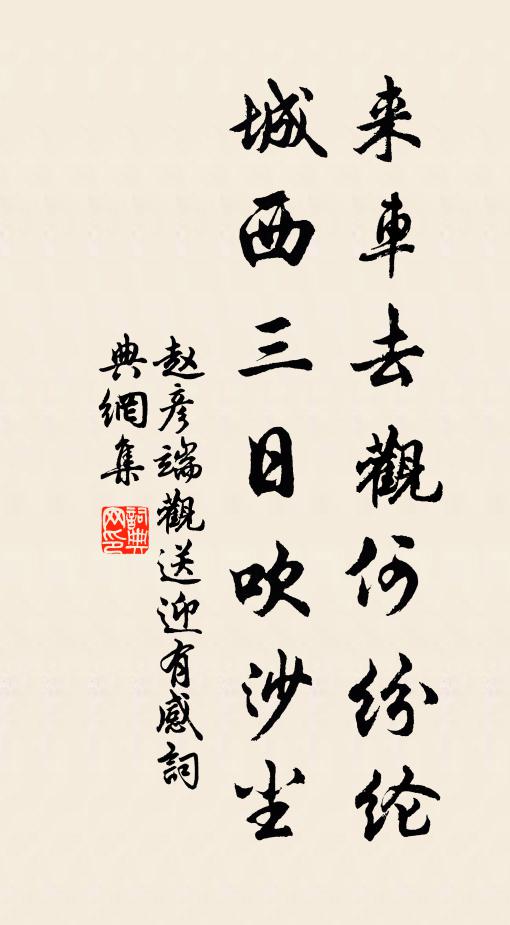 来車去觀何纷纶
城西三日吹沙尘
赵彦端觀送迎有感詞
典網集
詞典
网印